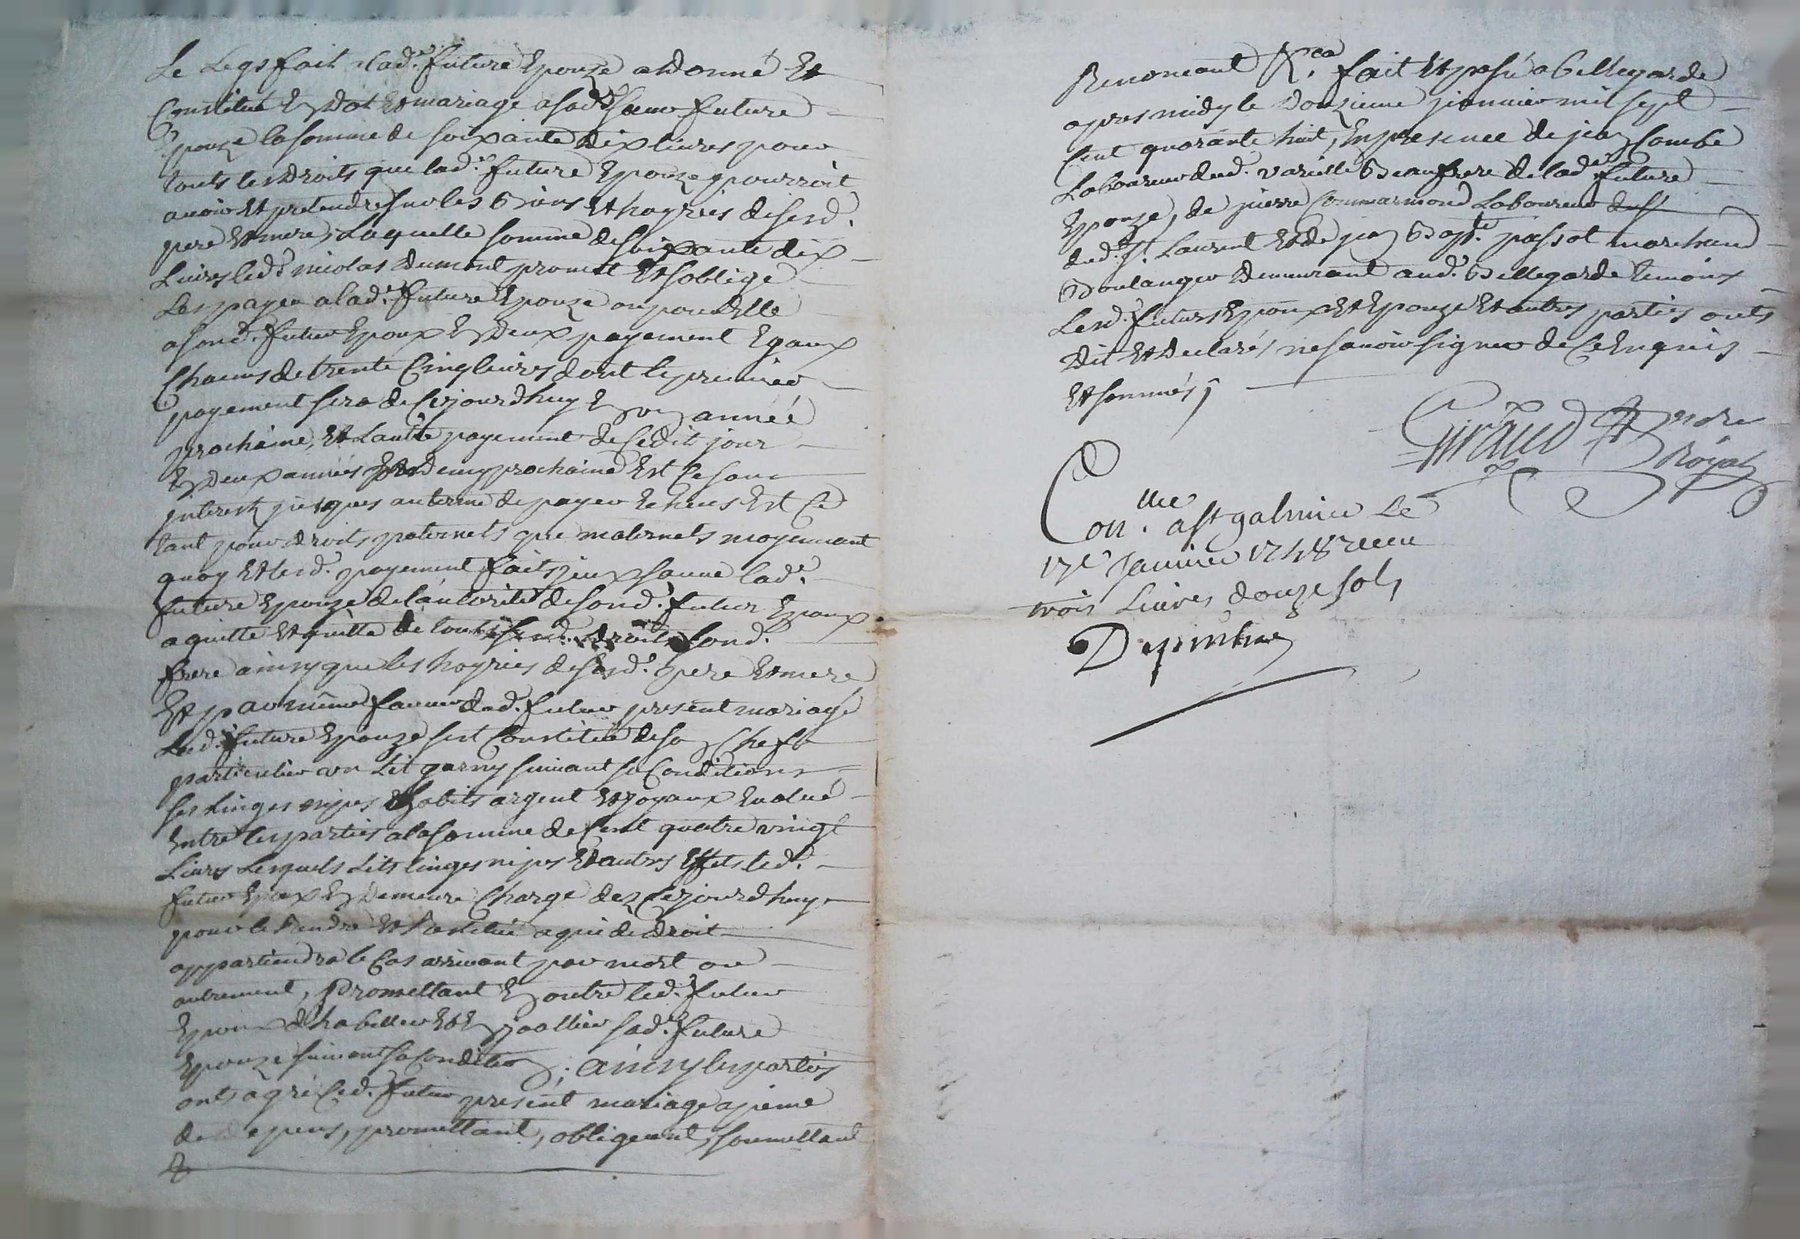 Le Legs fait a lad.e future Epouze a donné Et
Constitué En dot Et mariage a sad.e sœur future
Epouze la somme de soixante dix livres pour
touts les droits que lad.e future Epouze pourroit
avoir Et pretendre sur les biens Et hoyries de sesd.
pere Et mere, Laquelle somme de soixante dix
Livres led. nicolas dumont promet Et soblige
Les payer a lad.e future Epouze ou pour Elle
a sond. futur Epoux En deux payement Egaux
Chacuns de trente Cinq livres dont le premier
payement sera de Cejourdhuy En un année
prochaine, Et L'autre payement de Cedit jour
En deux années prochaine Et Ce sans
interest jusques au terme de payer Echeus Et Ce
tant pour droits paternels que maternels moyennant
quoy Et lesd. payement faits lad.e
future Epouze de l'autorité de sond. futur Epoux
a quitté Et quitte de touts sesd. droits sond.
frere ainsy que les hoyries de sesd. pere Et mere
Et par même faveur dud. futur present mariage
Lad.e future Epouze sest Constitué de son Chef
particulier un Lit garny suivant sa Condition
ses linges nipes Et habits argent Et joyaux Evalué
Entre les parties a la somme de Cent quatre vingt
Livres Lesquels Lits linges nipes Et autres Effets led.
futur Epoux En demeure Chargé dez Cejourdhuy
pour le rendre Et restitué a qui de droit
appartiendra le Cas arrivant par mort ou
autrement, Promettant En outre led. futur
Epoux d'habiller Et Enjoallier sad.e future
Epouze suivant sa Condition ; ainsy les parties
onts agréé led. futur present mariage a peine
de depens, promettant, obligeant, soumettant
Renoncant &.ca fait Et passé a bellegarde
apres midy le douzieme janvier mil sept
Cent quarante huit, En presence de jean Combe
Laboureur dud. varielle beaufrere de lad.e future
Epouze, de pierre Commarmond Laboureur
dud. St. Laurent Et de jean bapt.te passot marchand
Boulanger demeurant aud. Bellegarde temoins
Lesd. futurs Epoux Et Epouze Et autres parties onts
dit Et declarés ne savoir signer de Ce Enquis
Et sommés
Giraud No.re
Royal
Con.lle a St galmier Le
17e Janvier 1748 Receu
trois Livres douze sols
Depinhac